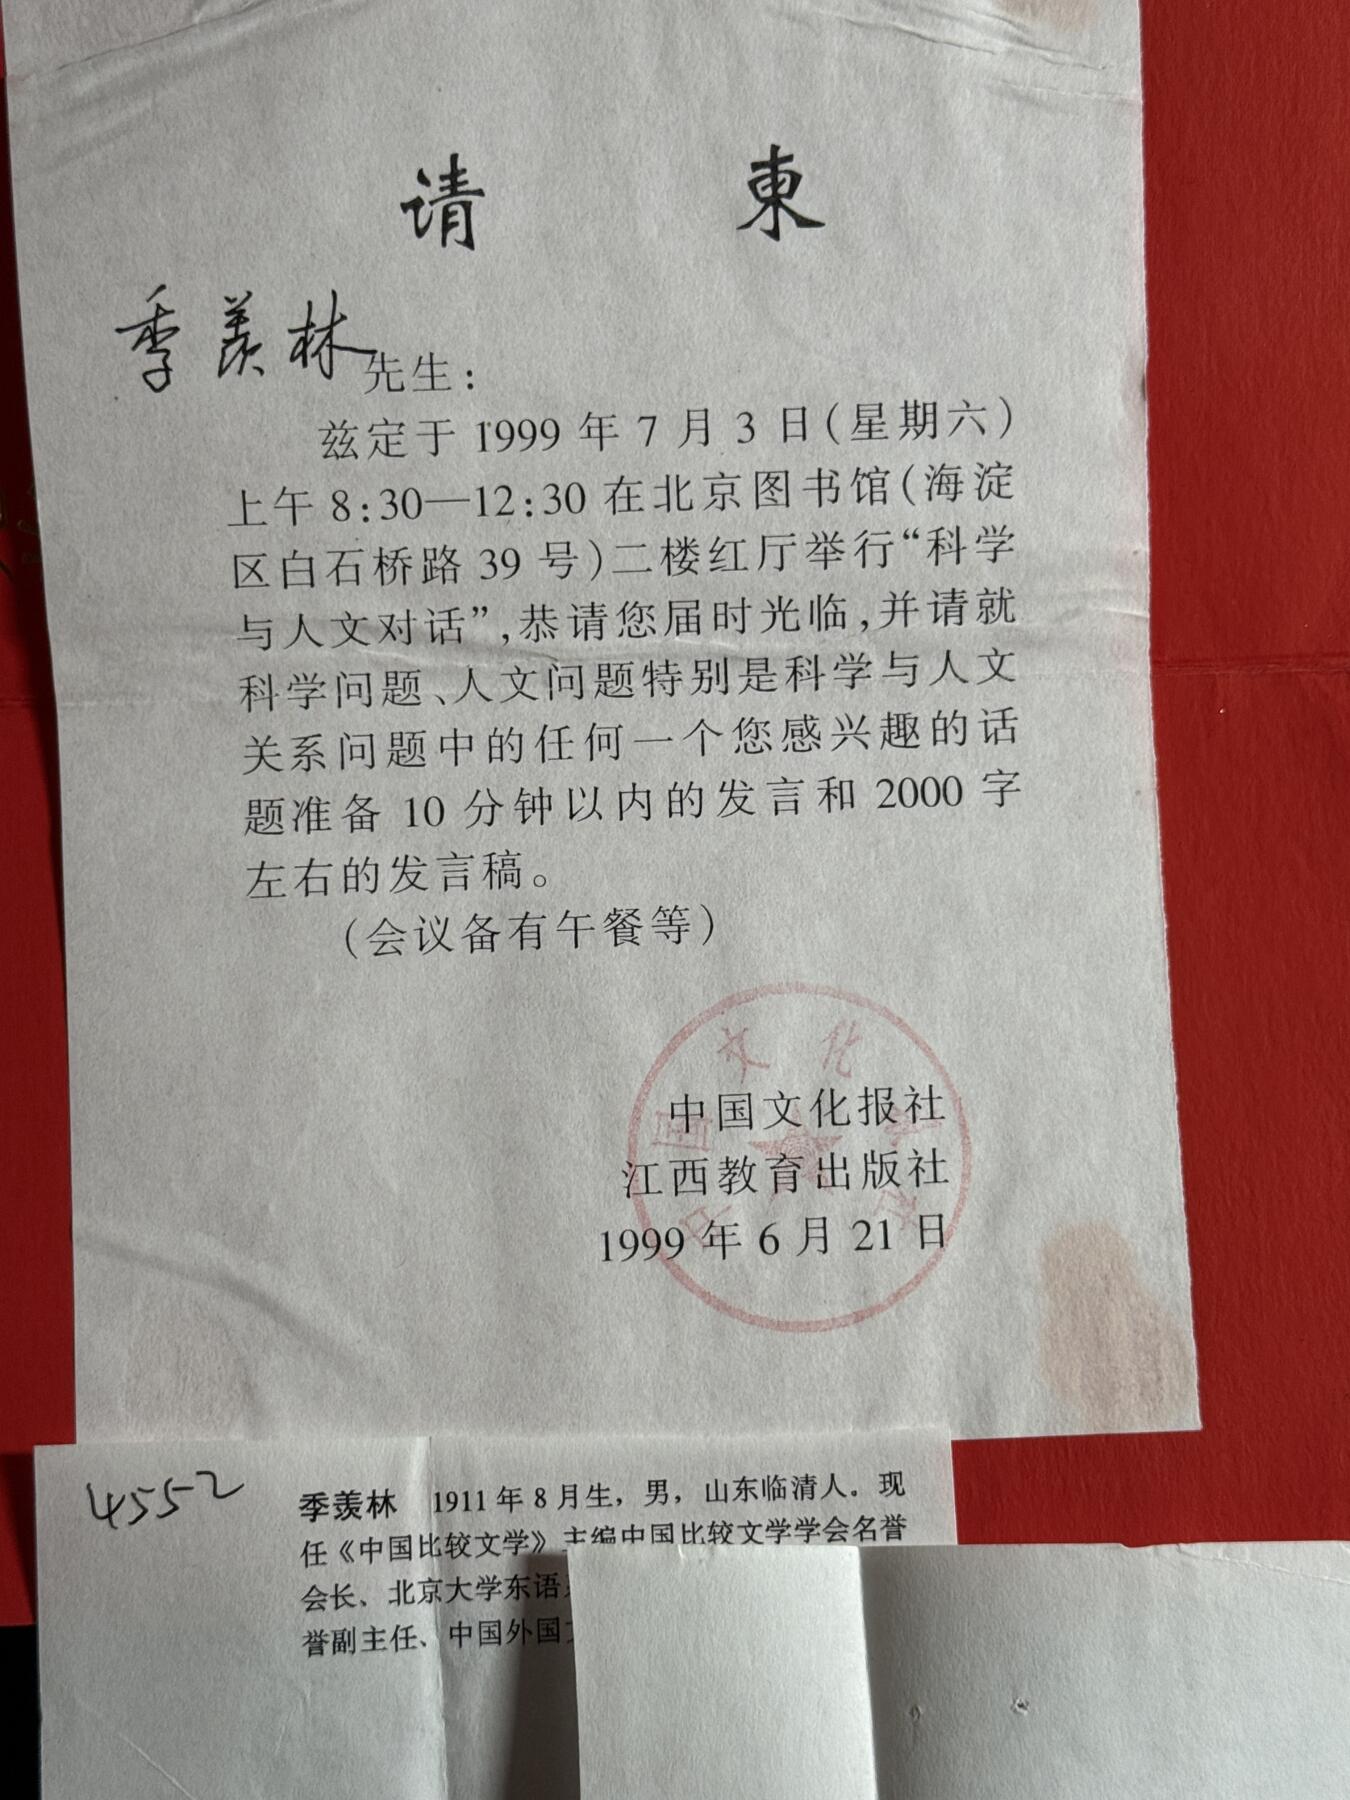 请柬
季羡林先生：
兹定于1999年7月3日（星期六）
上午8:30—12:30在北京图书馆（海淀
区白石桥路39号）二楼红厅举行“科学
与人文对话”，恭请您届时光临，并请就
科学问题、人文问题特别是科学与人文
关系问题中的任何一个您感兴趣的话
题准备10分钟以内的发言和2000字
左右的发言稿。
（会议备有午餐等）
中国文化报社
江西教育出版社
1999年6月21日
中国文化报社
4552
季羡林 1911年8月生，男，山东临清人。现
任《中国比较文学》主编中国比较文学学会名誉
会长、北京大学东语
誉副主任、中国外国